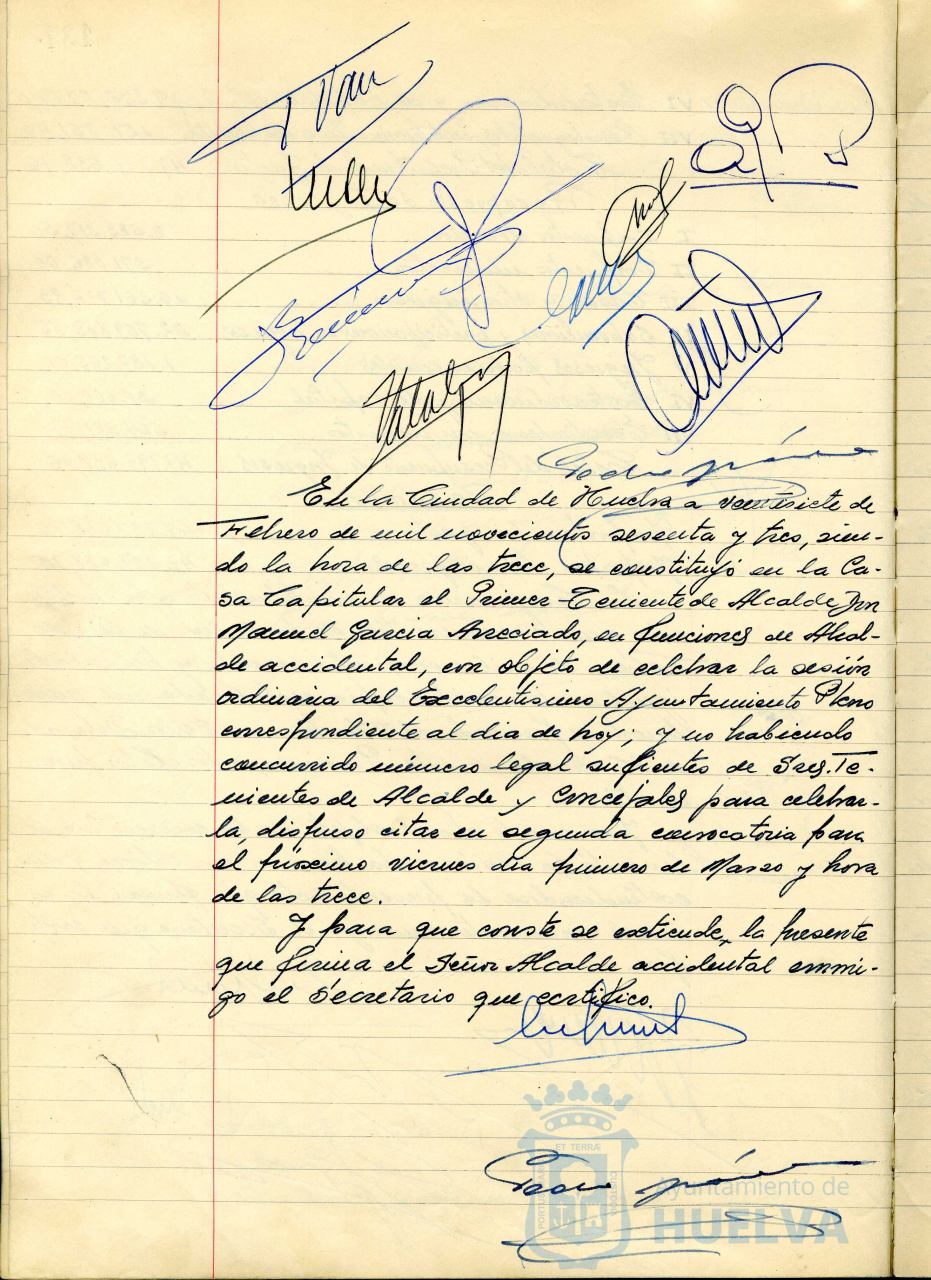 En la Ciudad de Huelva a veintisiete de
Febrero de mil novecientos sesenta y tres, sien-
do la hora de las trece, se constituyó en la Ca-
sa Capitular el Primer Teniente de Alcalde Don
Manuel Garcia Arreciado, en funciones de Alcal-
de accidental, con objeto de celebrar la sesión
ordinaria del Excelentisimo Ayuntamiento Pleno
correspondiente al dia de hoy; y no habiendo
concurrido número legal suficientes de Sres. Te-
nientes de Alcalde y Concejales para celebrar-
la, dispuso citar en segunda convocatoria para
el próximo viernes dia primero de Marzo y hora
de las trece.
Y para que conste se extiende, la presente
que firma el Señor Alcalde accidental conmi-
go el Secretario que certifico.
ET TERRÆ
PORTUS MARIS
CUSTODIA
Ayuntamiento de
HUELVA